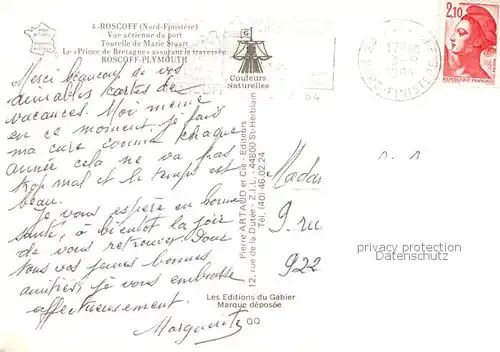 4 - ROSCOFF (Nord-Finistère)
Vue aérienne du port
Tourelle de Marie Stuart
Le «Prince de Bretagne» assurant la traversée
ROSCOFF-PLYMOUTH
G
Couleurs
Naturelles
2,10
RÉPUBLIQUE FRANÇAISE
17 H
FINISTERE
Merci beaucoup de vos
aimables cartes de
vacances. Moi même
en ce moment je fais
ma cure comme chaque
année cela ne va pas
trop mal et le temps est
beau.
Je vous espère en bonne
santé, à bientôt la joie
de vous retrouver. Vous
tous vos jeunes bonnes
amitiés, je vous embrasse
affectueusement.
Marguerite
Pierre ARTAUD et Cie - Editeurs
12, rue de la Dutée - Z.I.L. - 44800 St-Herblain
Tél. (40) 46.02.24
Madam
9. rue
922
privacy protection
Datenschutz
Les Editions du Gabier
Marque déposée